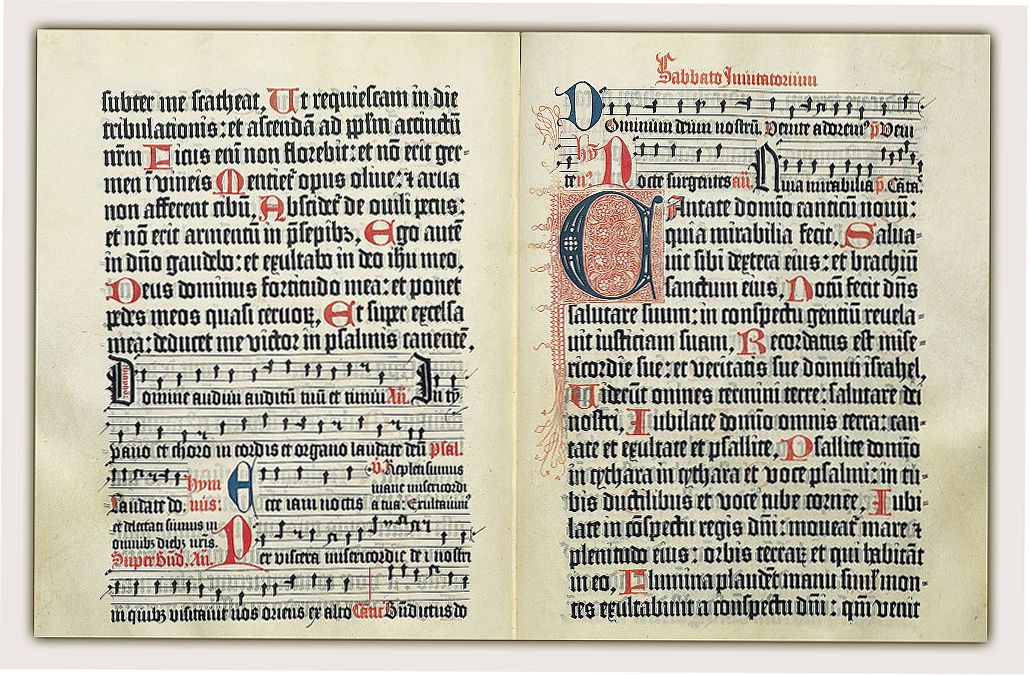 subter me scatheat, Ut requiescam in die
tribulationis: et ascendā ad pplm accinctū
nr̄m Ficus eni non florebit: et nō erit ger-
men ī vineis Mentiet̄ opus olive: ⁊ arua
non afferent cibū, Abscidet̄ de ouili pecus:
et nō erit armentū in p̄sepibꝫ, Ego autē
in dn̄o gaudebo: et exultabo in deo ihu meo,
Deus dominus fortitudo mea: et ponet
pedes meos quasi ceruoꝝ, Et super excelsa
mea: deducet me victor in psalmis canentē,
Domine audiui auditū tuū et timui An̄. In ty
pano et choro in cordis et organo laudate deū psal.
Laudate do. hym nus: Ecce iam noctis
v̄. Repleti sumus
mane misericordi
a tua: Exultauim
et delectati sumus in
omnibꝫ diebꝫ nr̄is.
Super bn̄d. An̄. Per viscera misericordie dei nostri
in quibꝫ visitauit nos oriens ex alto Cāt Bn̄dictus do
Sabbato Inuitatorium
Dominum deum nostrū. Venite adorem p̄ Veni
te. hȳ n: Nocte surgentes an̄. Quia mirabilia p̄. Cāta.
Cantate domīo canticū nouū:
quia mirabilia fecit, Salua-
uit sibi dextera eius: et brachiū
sanctum eius, Notū fecit dn̄s
salutare suum: in conspectu gentiū reuela-
uit iusticiam suam, Recordatus est mise-
ricordie sue: et veritatis sue domui israhel,
Uiderūt omnes termini terre: salutare dei
nostri, Iubilate domīo omnis terra: can-
tate et exultate et psallite, Psallite domīo
in cythara in cythara et voce psalmi: in tu-
bis ductilibus et voce tube cornee, Iubi-
late in cōspectu regis dn̄i: moueat̄ mare ⁊
plenitudo eius: orbis terraꝝ et qui habitāt
in eo, Flumina plaudēt manu simł mon-
tes exultabunt a conspectu dn̄i: qm̄ venit